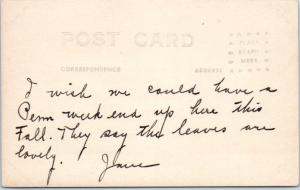 POST CARD
CORRESPONDENCE
ADDRESS
PLACE
STAMP
HERE
I wish we could have a
Penn week end up here this
Fall. They say the leaves are
lovely. Jane